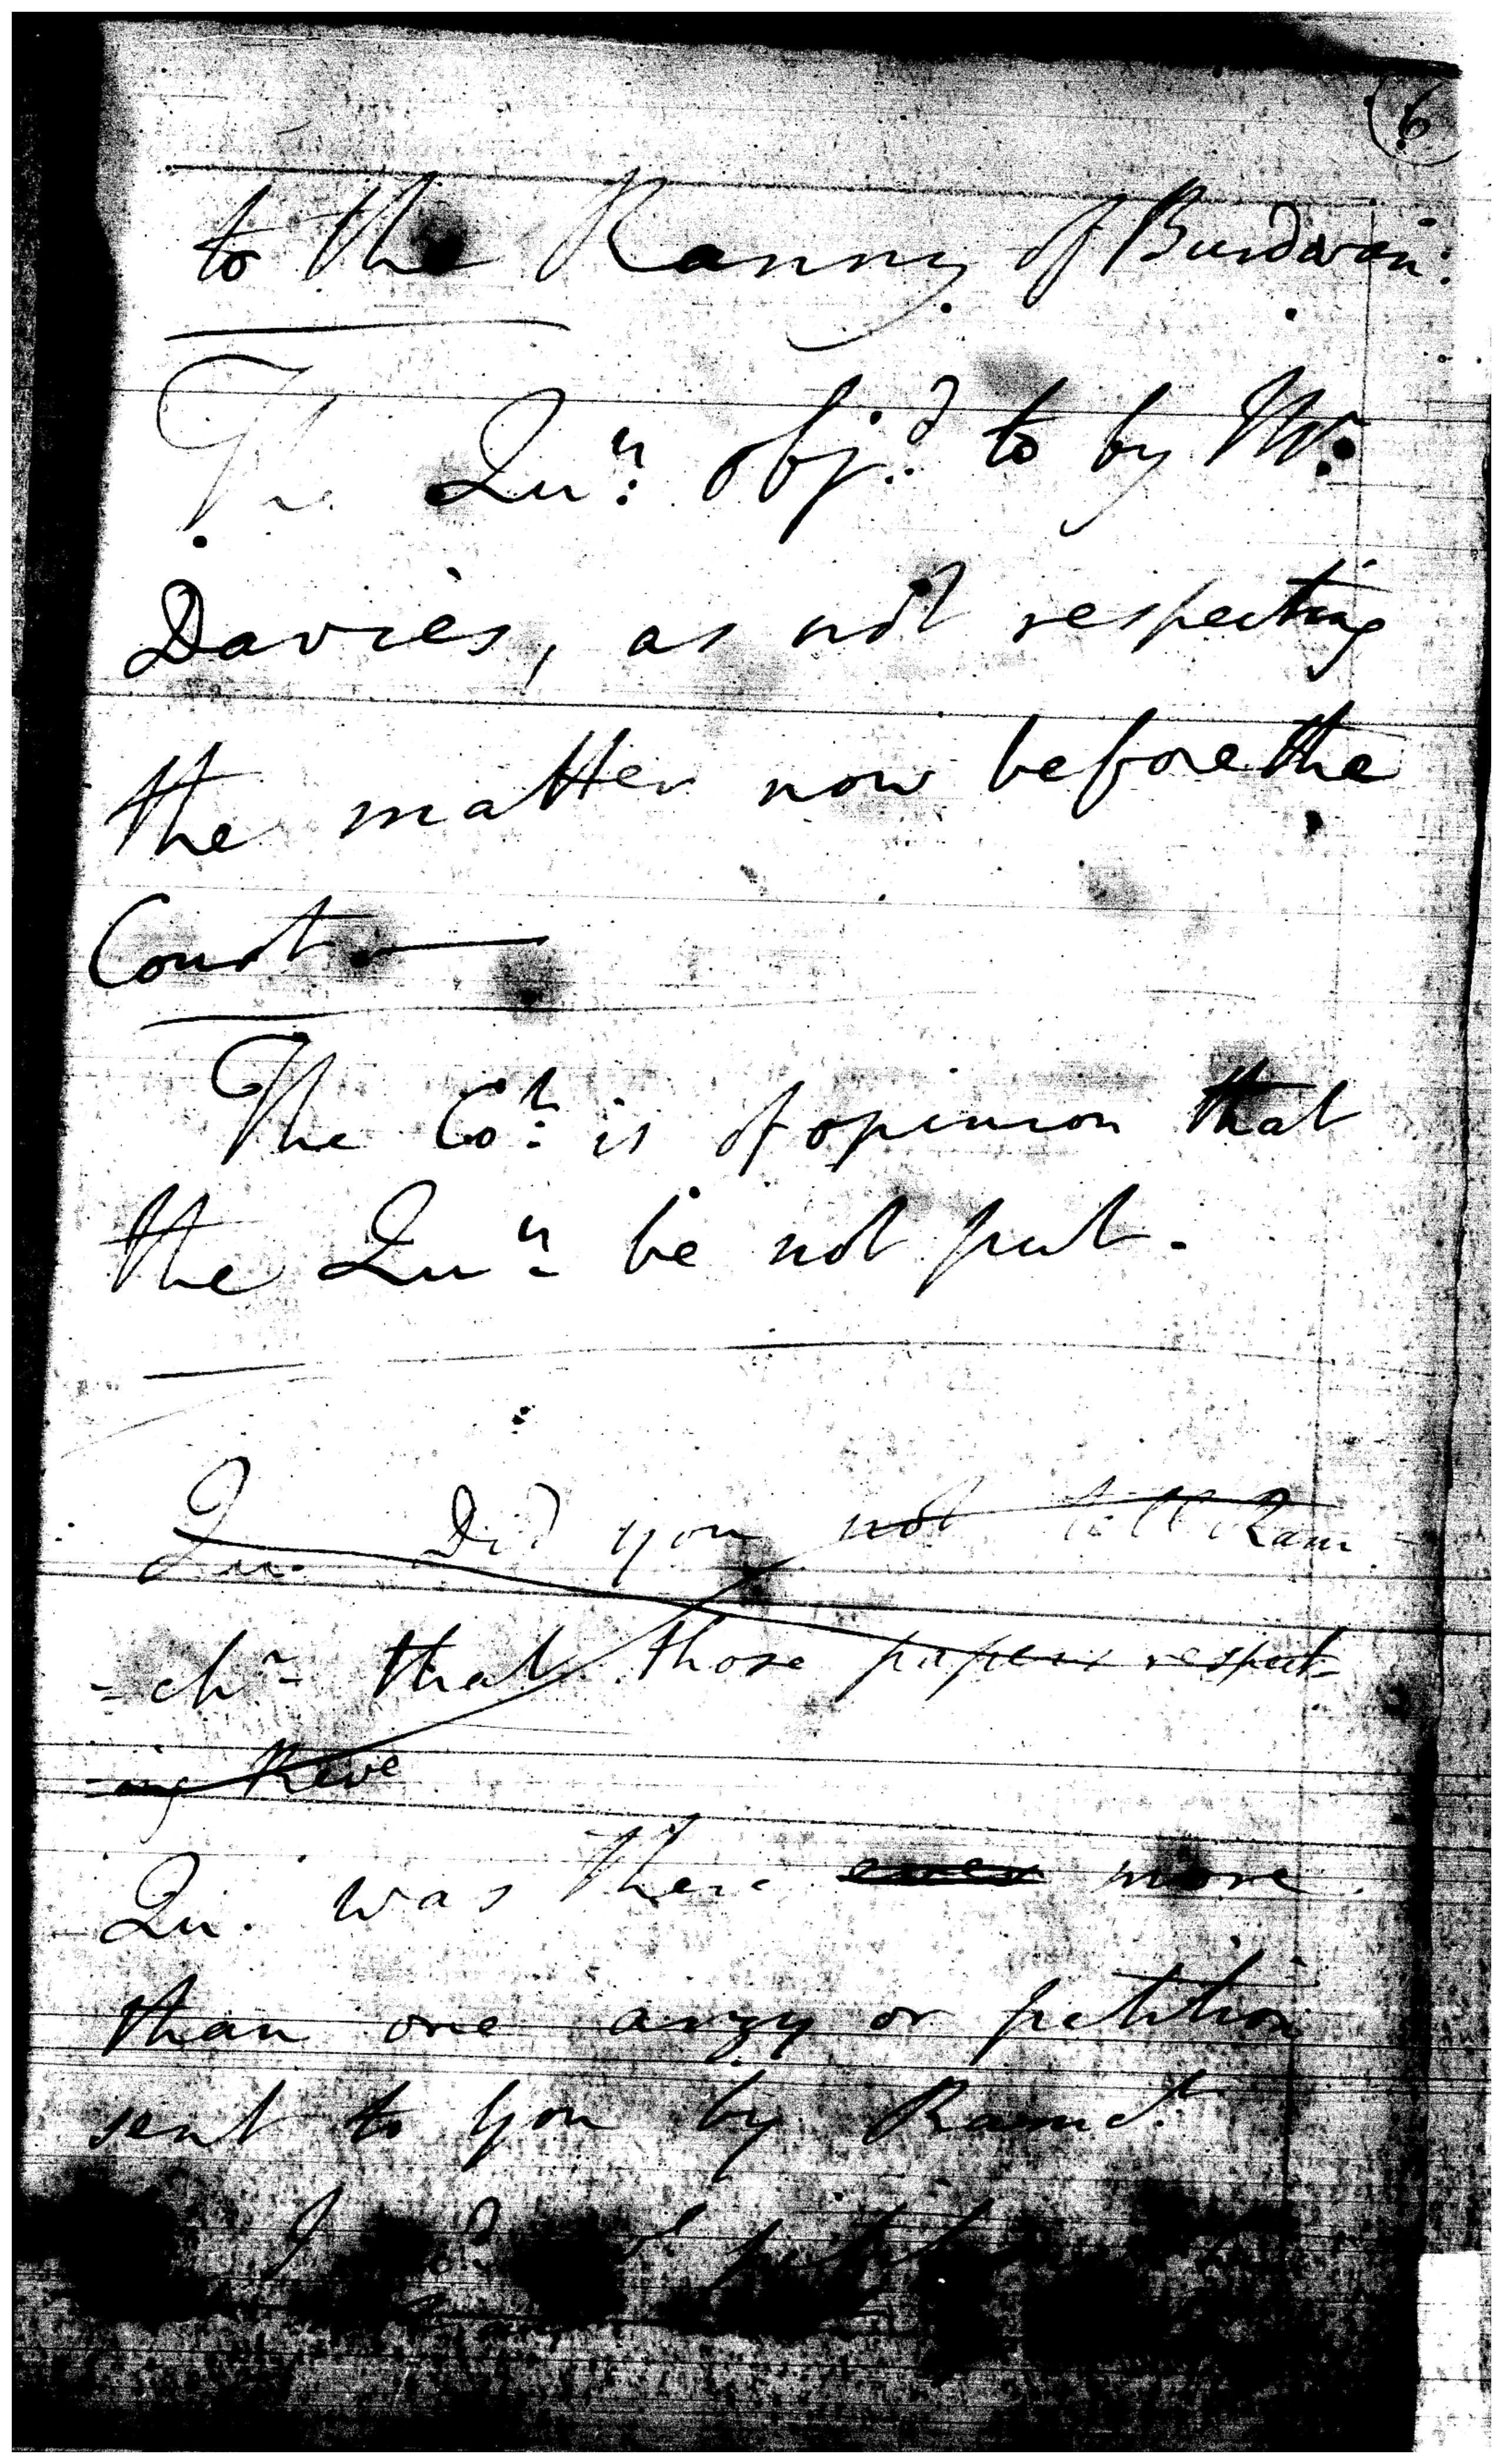 6
to the Ranny of Burdwan:
The Qu<sup>n</sup>: obj<sup>d</sup>: to by Mr.
Davies, as not respecting
the matter now before the
Court —
The Co<sup>t</sup>: is of opinion that
the Qu<sup>n</sup> be not put -
Qu. Did you not tell Ram
= ch<sup>n</sup> - that those papers respect=
-ing Reve
Qu. was there ever more
than one arzy or petition
sent to you by Ramc<sup>t</sup>